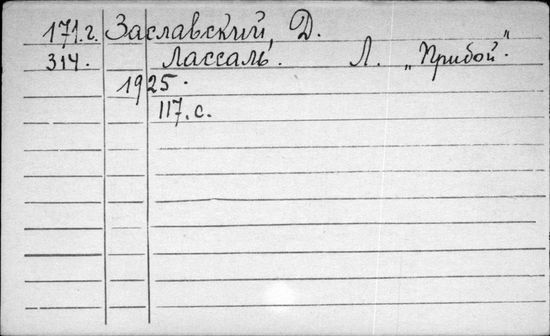 171.г. Заславский, Д.
314. Лассаль. Л. „Прибой".
1925.
117. с.